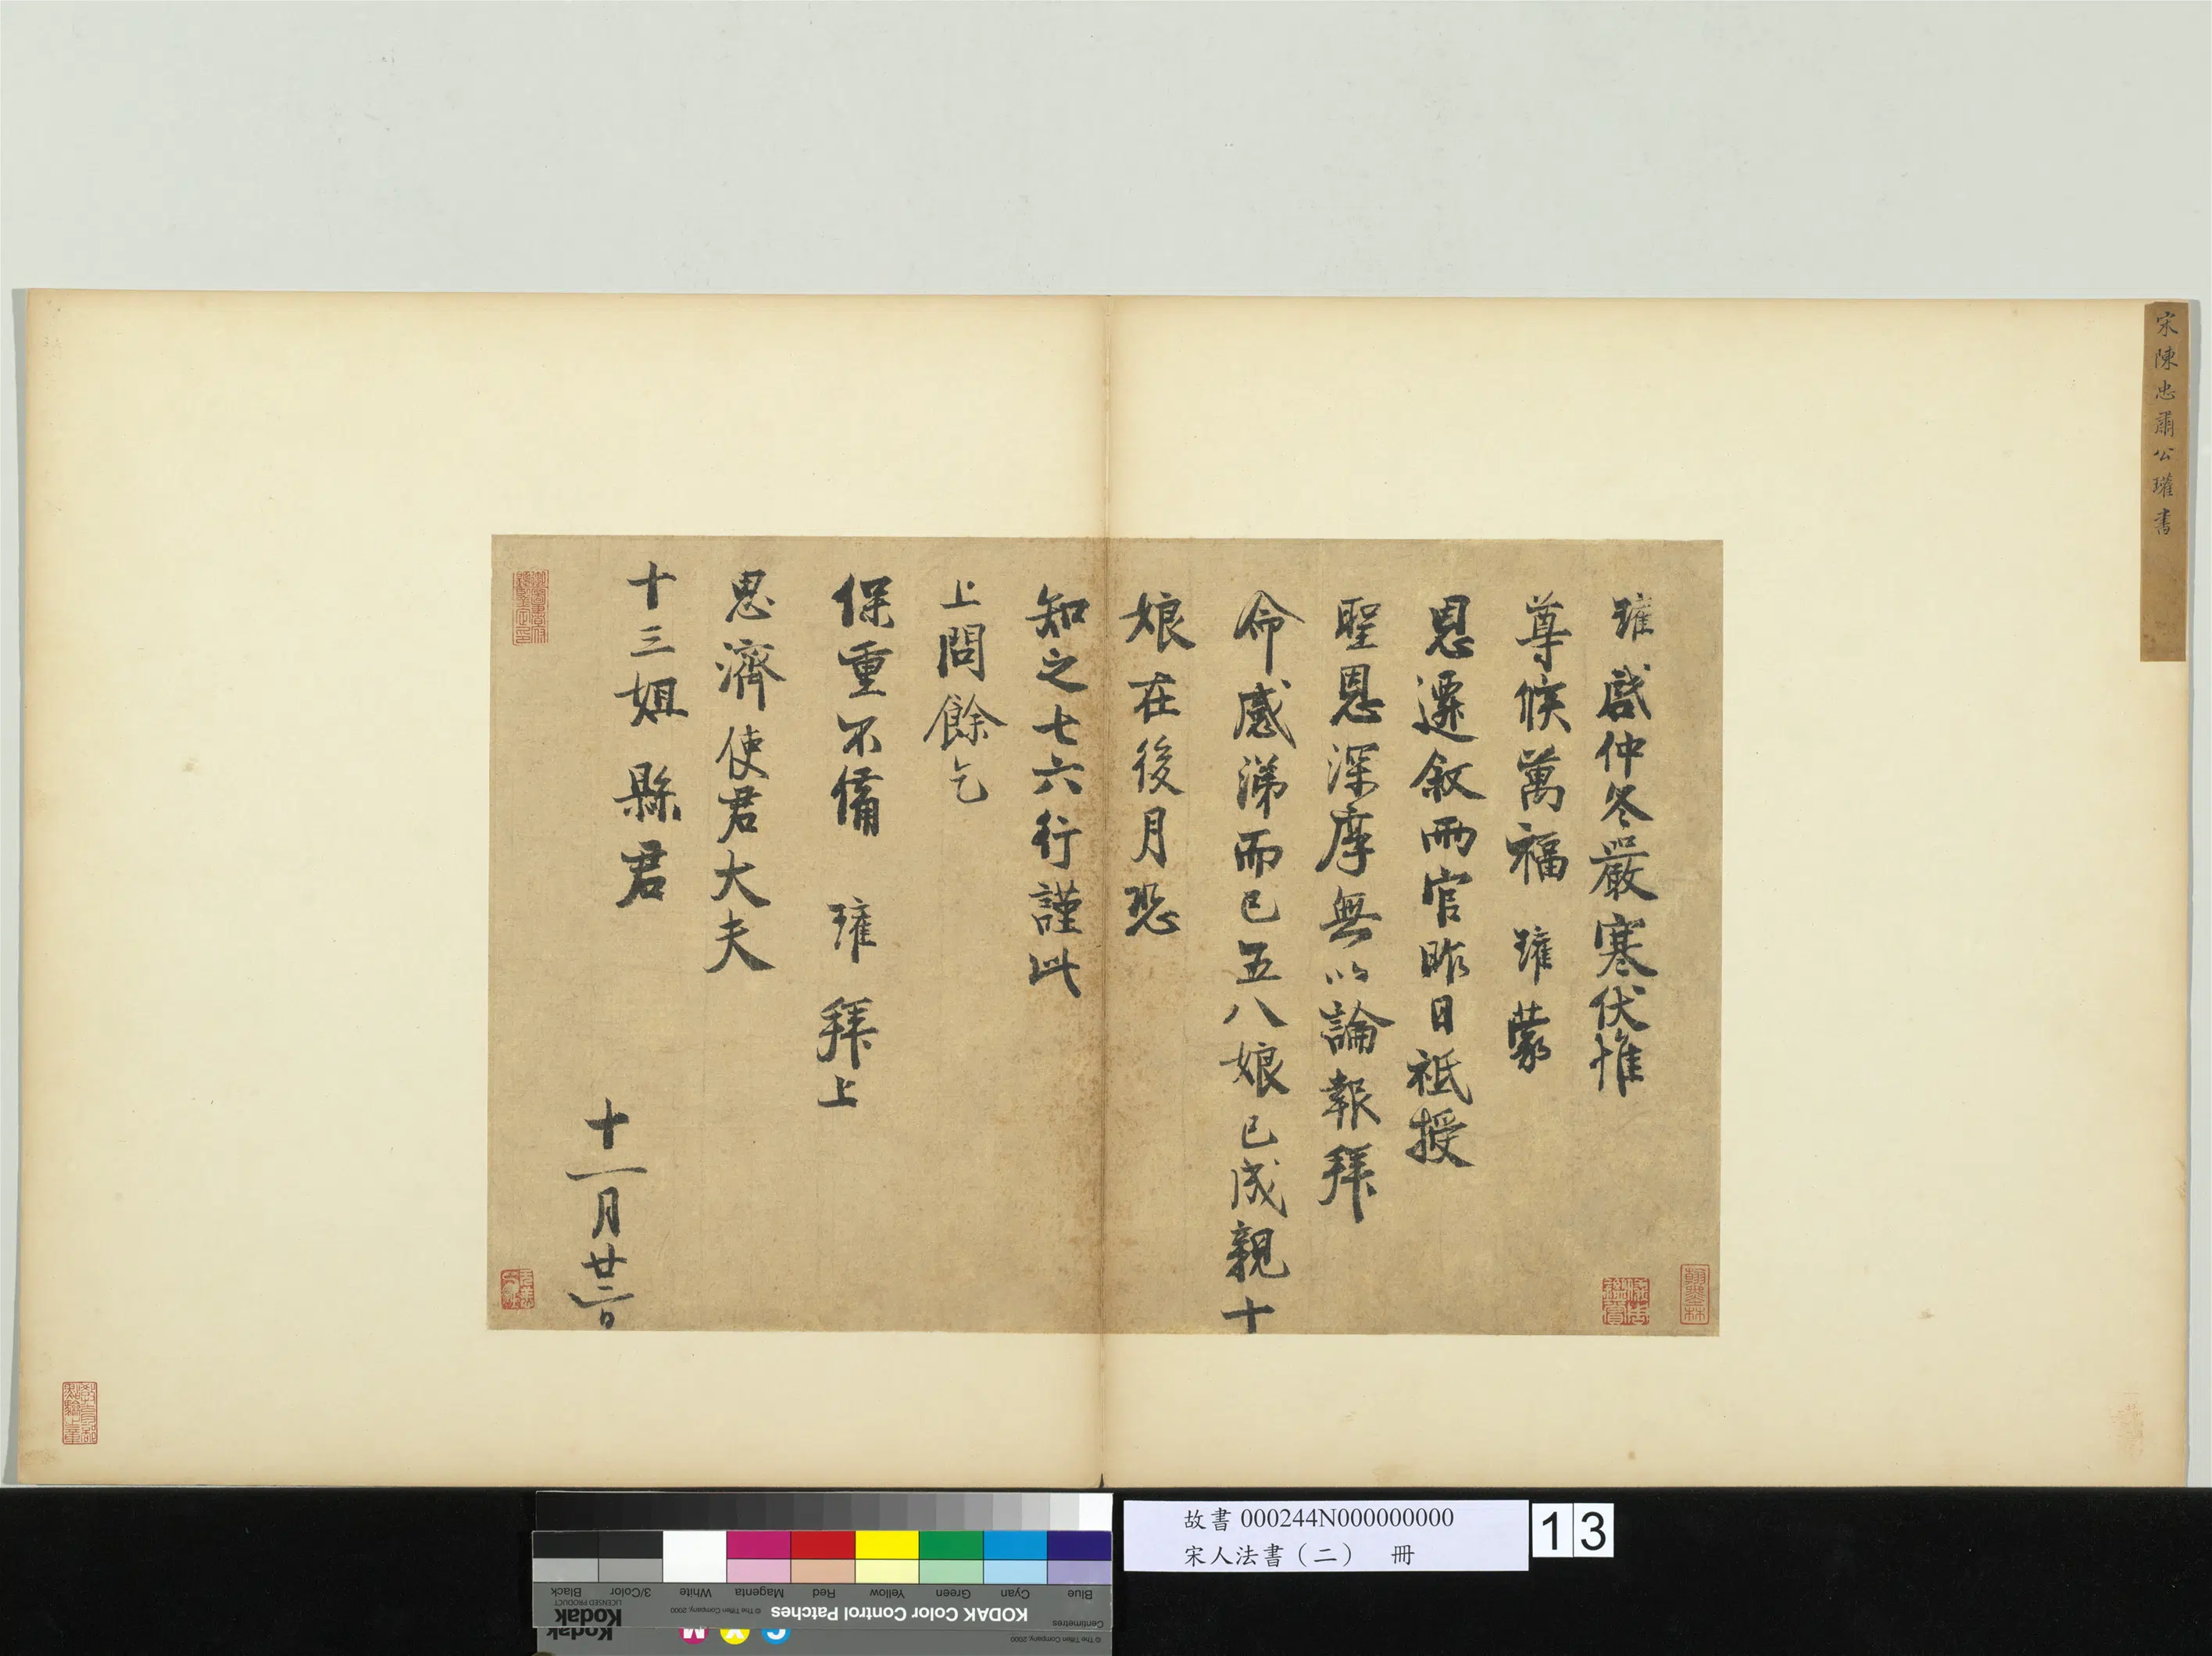 宋陳忠肅公瓘書
瓘啓仲冬嚴寒伏惟
尊候萬福瓘蒙
恩遷敘兩官昨日祗授
聖恩深厚無以論報拜
命感涕而已五八娘已成親十
娘在後月恐
知之七六行謹此
上問餘乞
保重不備 瓘 拜上
思濟使君大夫
十三姐縣君
十一月廿三日
翰墨林
故書 000244N000000000
宋人法書（二） 冊
13
Blue Cyan Green Yellow Red Magenta White 3/Color Black
Centimetres
KODAK Color Control Patches
© The Tiffen Company, 2000
Kodak
LICENSED PRODUCT
© The Tiffen Company, 2000
Kodak
C Y M